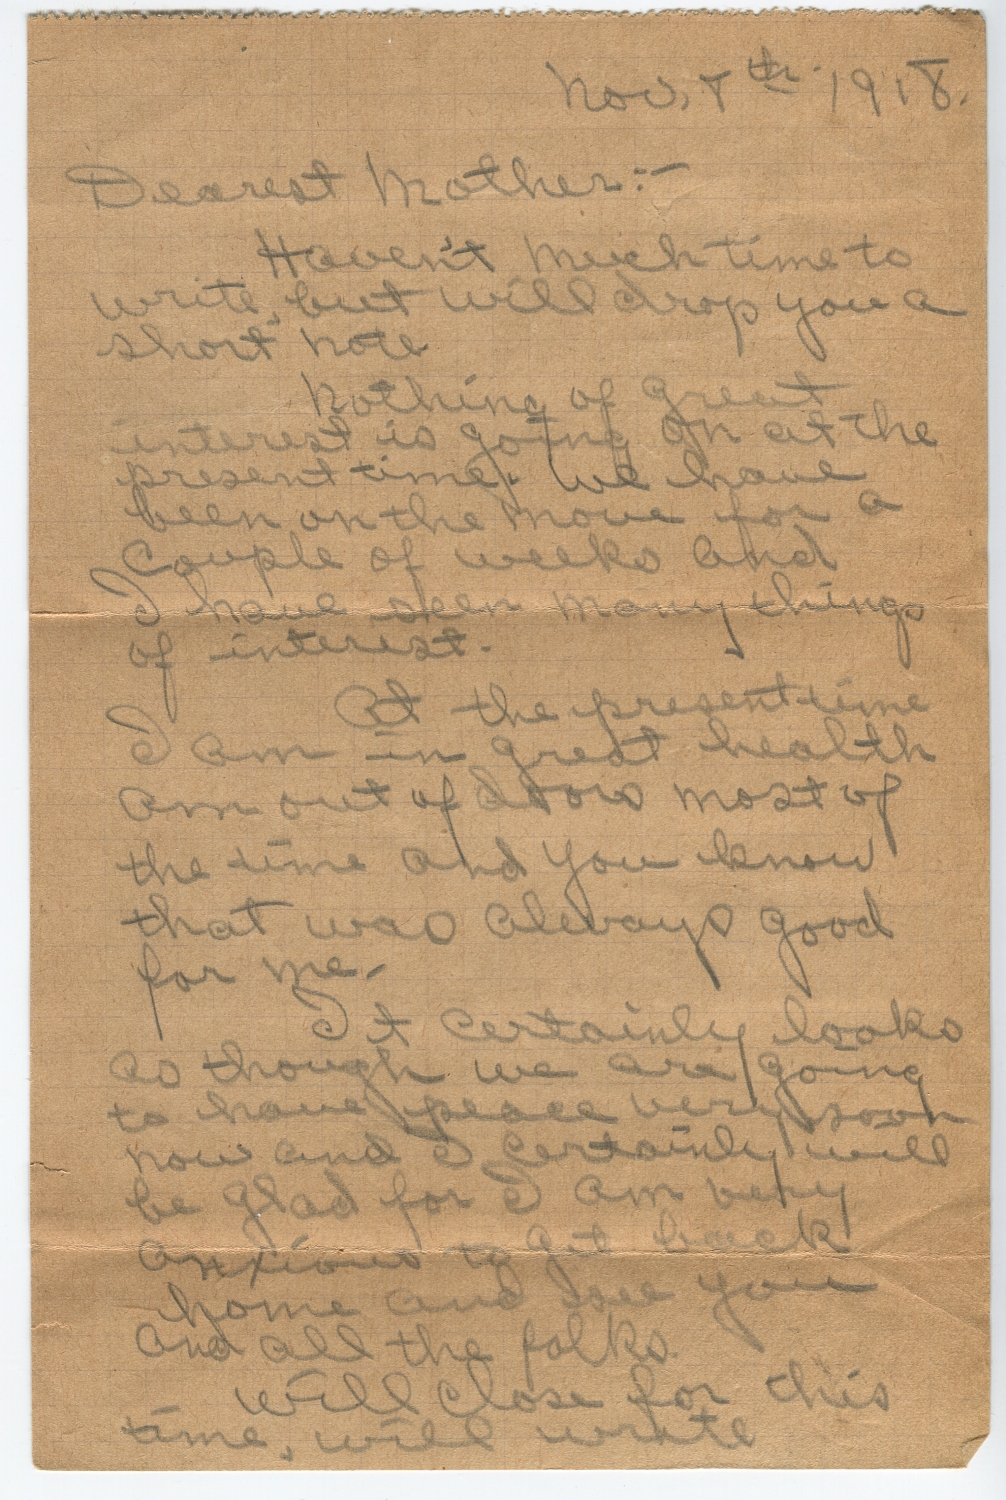 Nov, 8th 1918.
Dearest Mother:-
Haven't much time to
write, but will drop you a
short note
Nothing of great
interest is going on at the
present time. We have
been on the move for a
couple of weeks and
I have seen many things
of interest.
At the present time
I am in great health
am out of doors most of
the time and you know
that was always good
for me.
It certainly looks
as though we are going
to have peace very soon
now and I certainly will
be glad for I am very
anxious to get back
home and see you
and all the folks.
Will close for this
time, will write